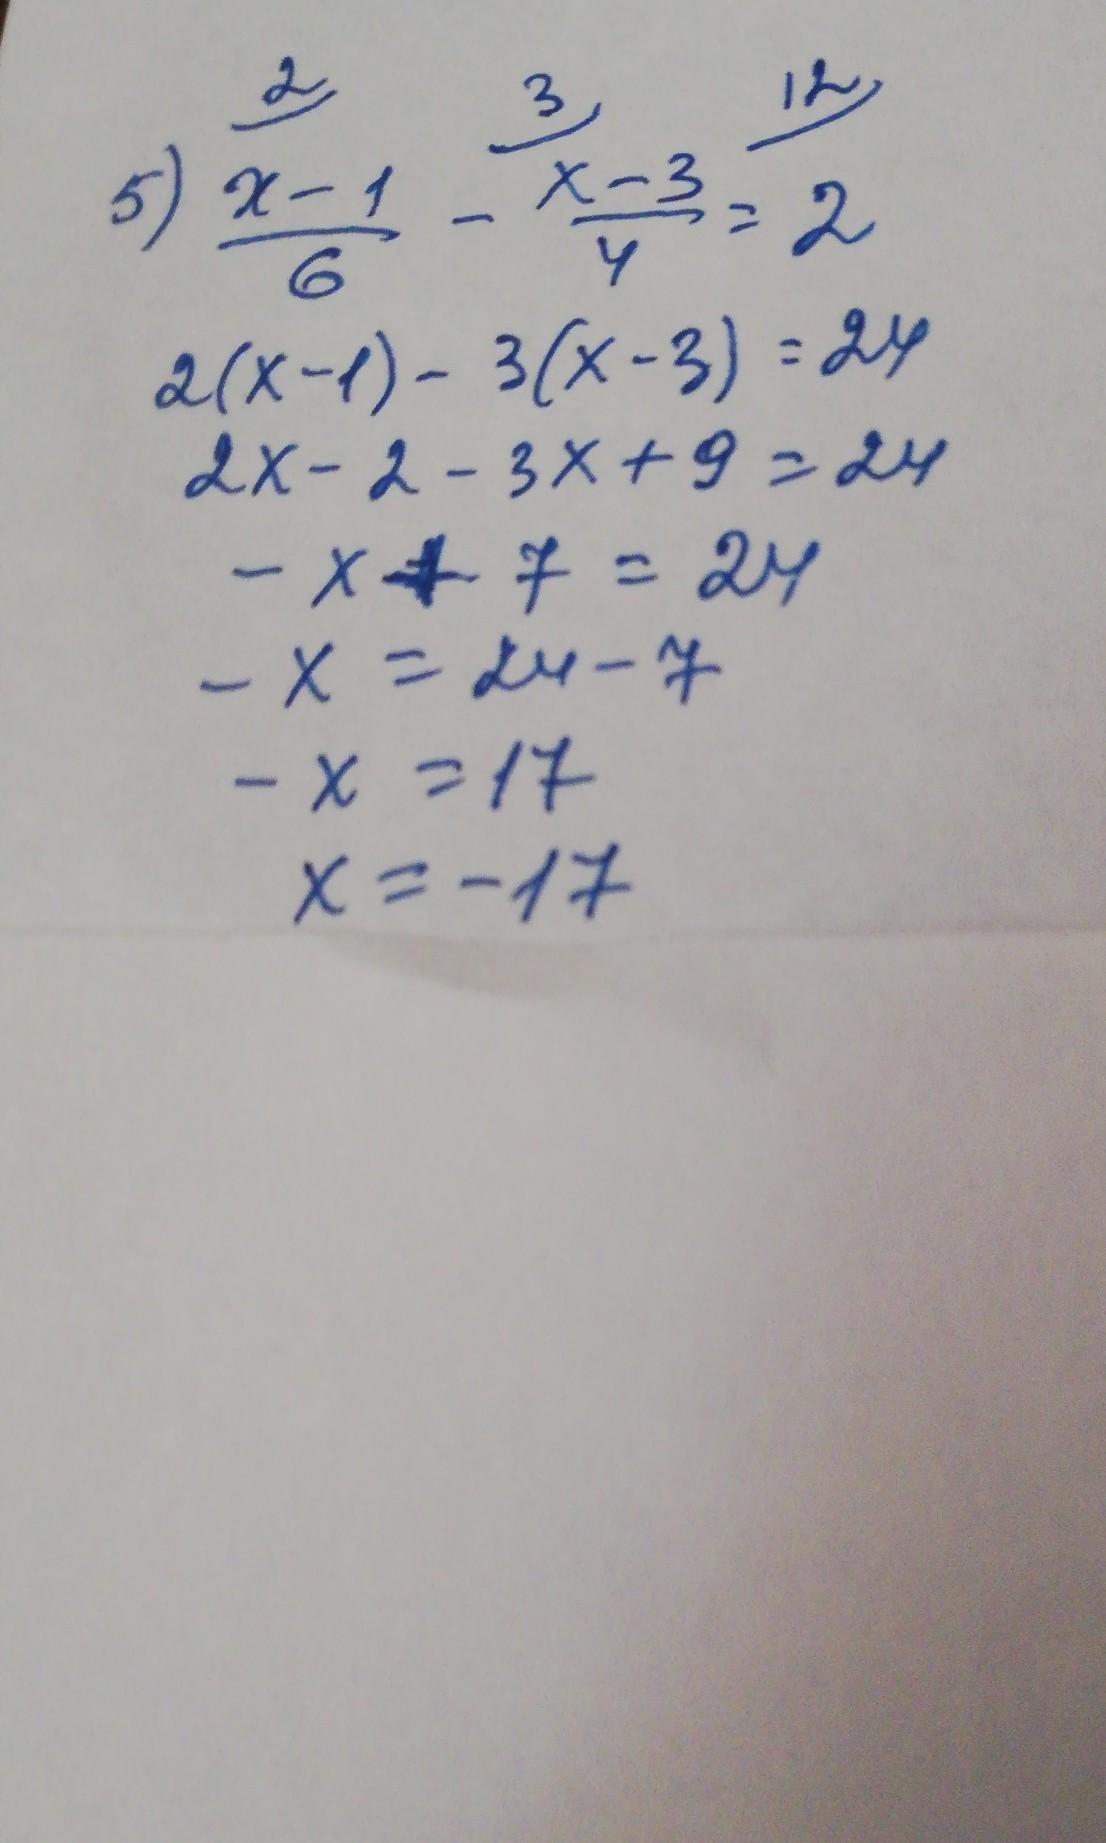 2 3 12
5) x-1/6 - x-3/4 = 2
2(x-1) - 3(x-3) = 24
2x - 2 - 3x + 9 = 24
- x + 7 = 24
- x = 24 - 7
- x = 17
x = -17